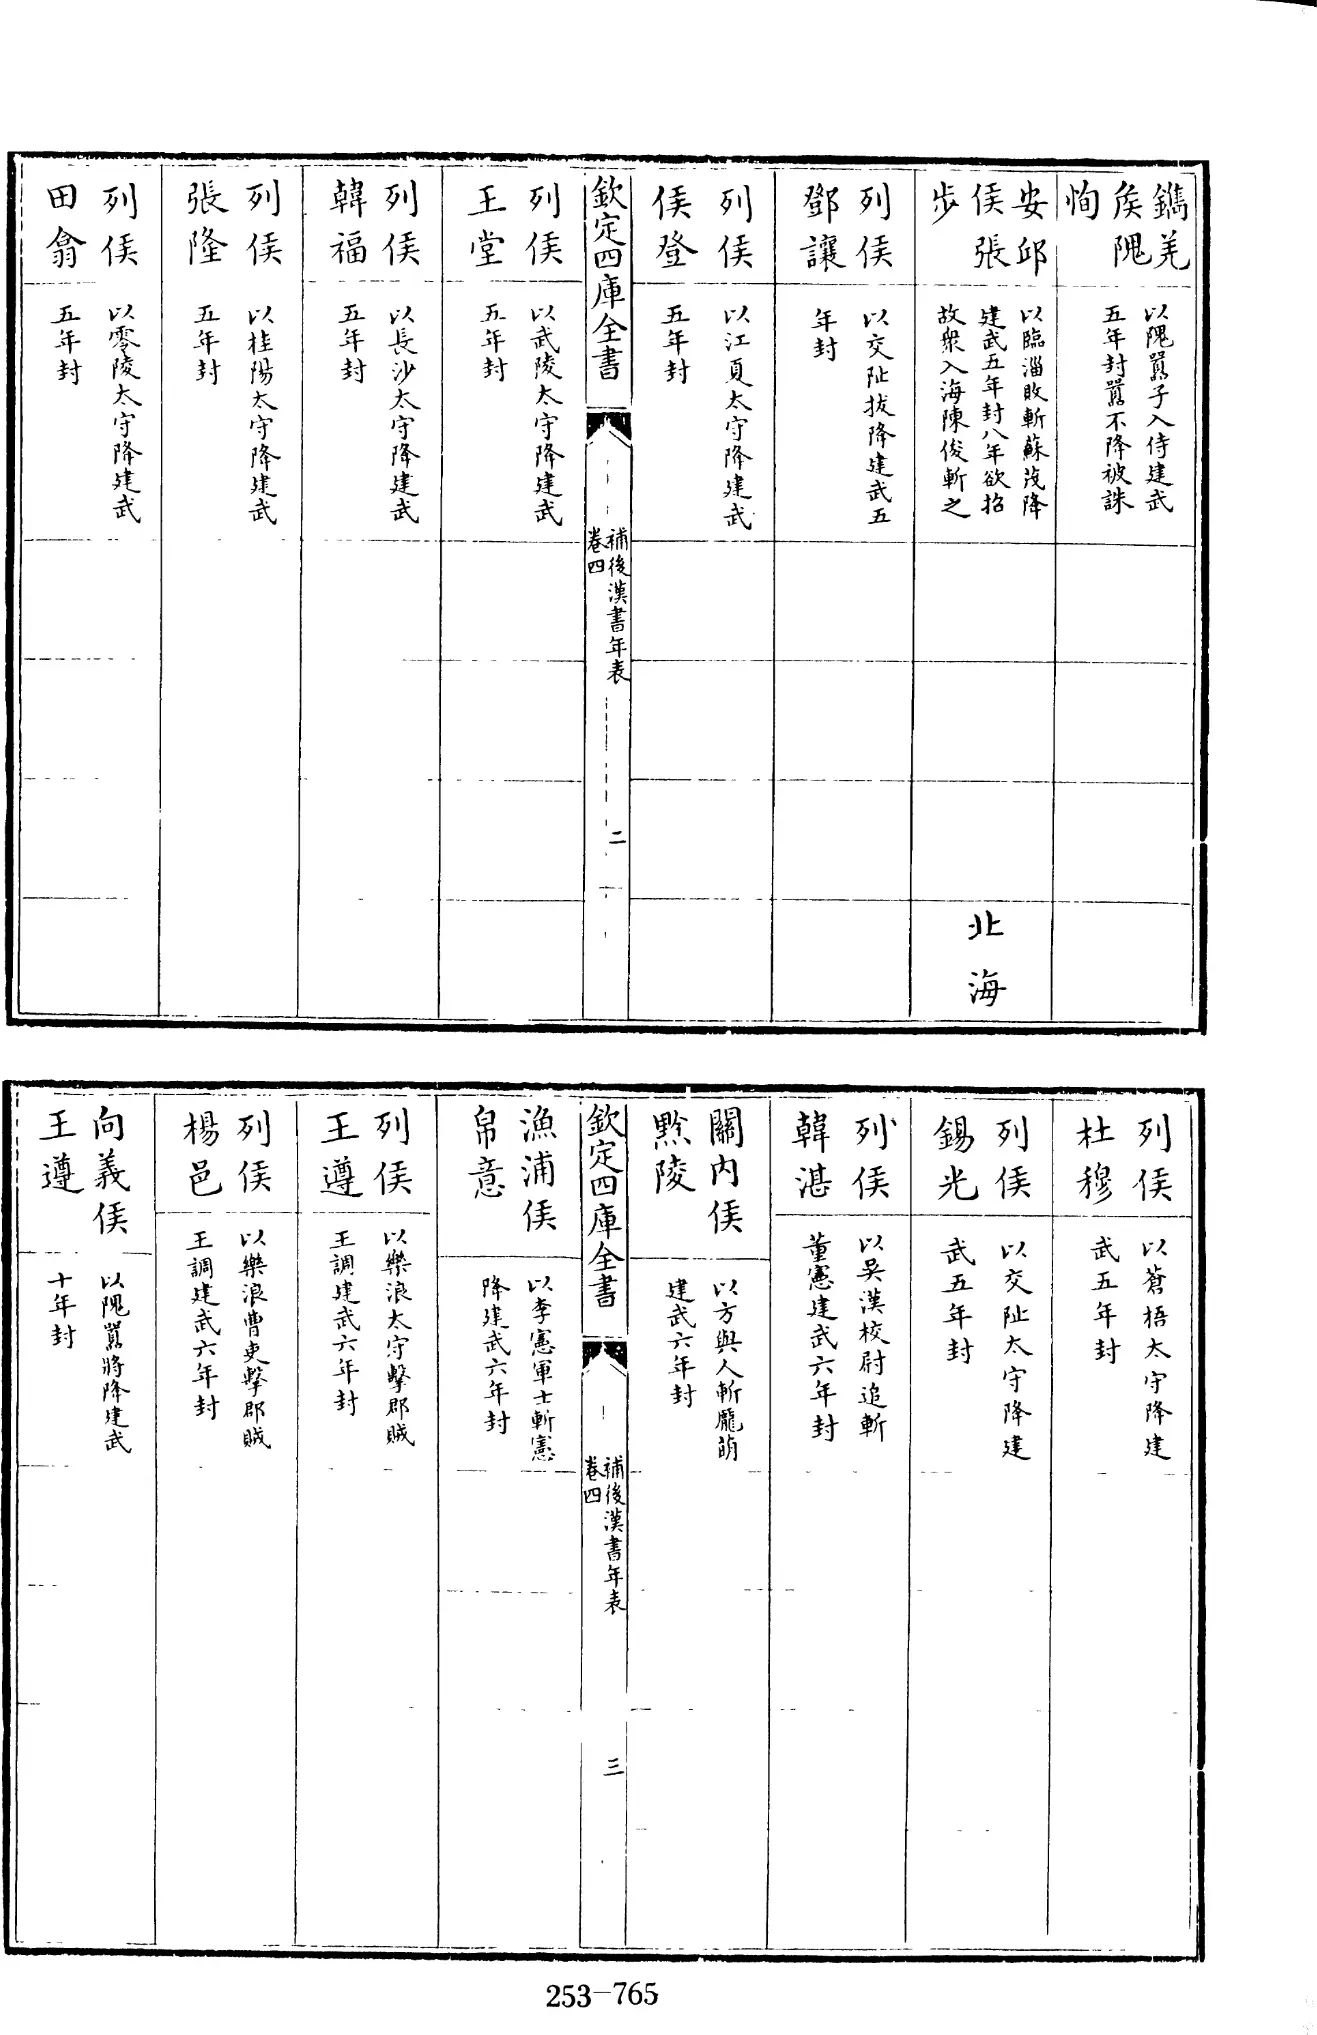 鐫羌
侯隗
恂
以隗囂子入侍建武
五年封囂不降被誅
安邱
侯張
步
以臨淄敗斬蘇茂降
建武五年封八年欲招
故衆入海陳俊斬之
北海
列侯
鄧讓
以交阯拔降建武五
年封
列侯
侯登
以江夏太守降建武
五年封
欽定四庫全書
補後漢書年表
卷四
二
列侯
王堂
以武陵太守降建武
五年封
列侯
韓福
以長沙太守降建武
五年封
列侯
張隆
以桂陽太守降建武
五年封
列侯
田翕
以零陵太守降建武
五年封
列侯
杜穆
以蒼梧太守降建
武五年封
列侯
錫光
以交阯太守降建
武五年封
列侯
韓湛
以吳漢校尉追斬
董憲建武六年封
關內侯
黔陵
以方與人斬龐萌
建武六年封
欽定四庫全書
補後漢書年表
卷四
三
漁浦侯
帛意
以李憲軍士斬憲
降建武六年封
列侯
王遵
以樂浪太守擊郡賊
王調建武六年封
列侯
楊邑
以樂浪曹吏擊郡賊
王調建武六年封
向義侯
王遵
以隗囂將降建武
十年封
253-765